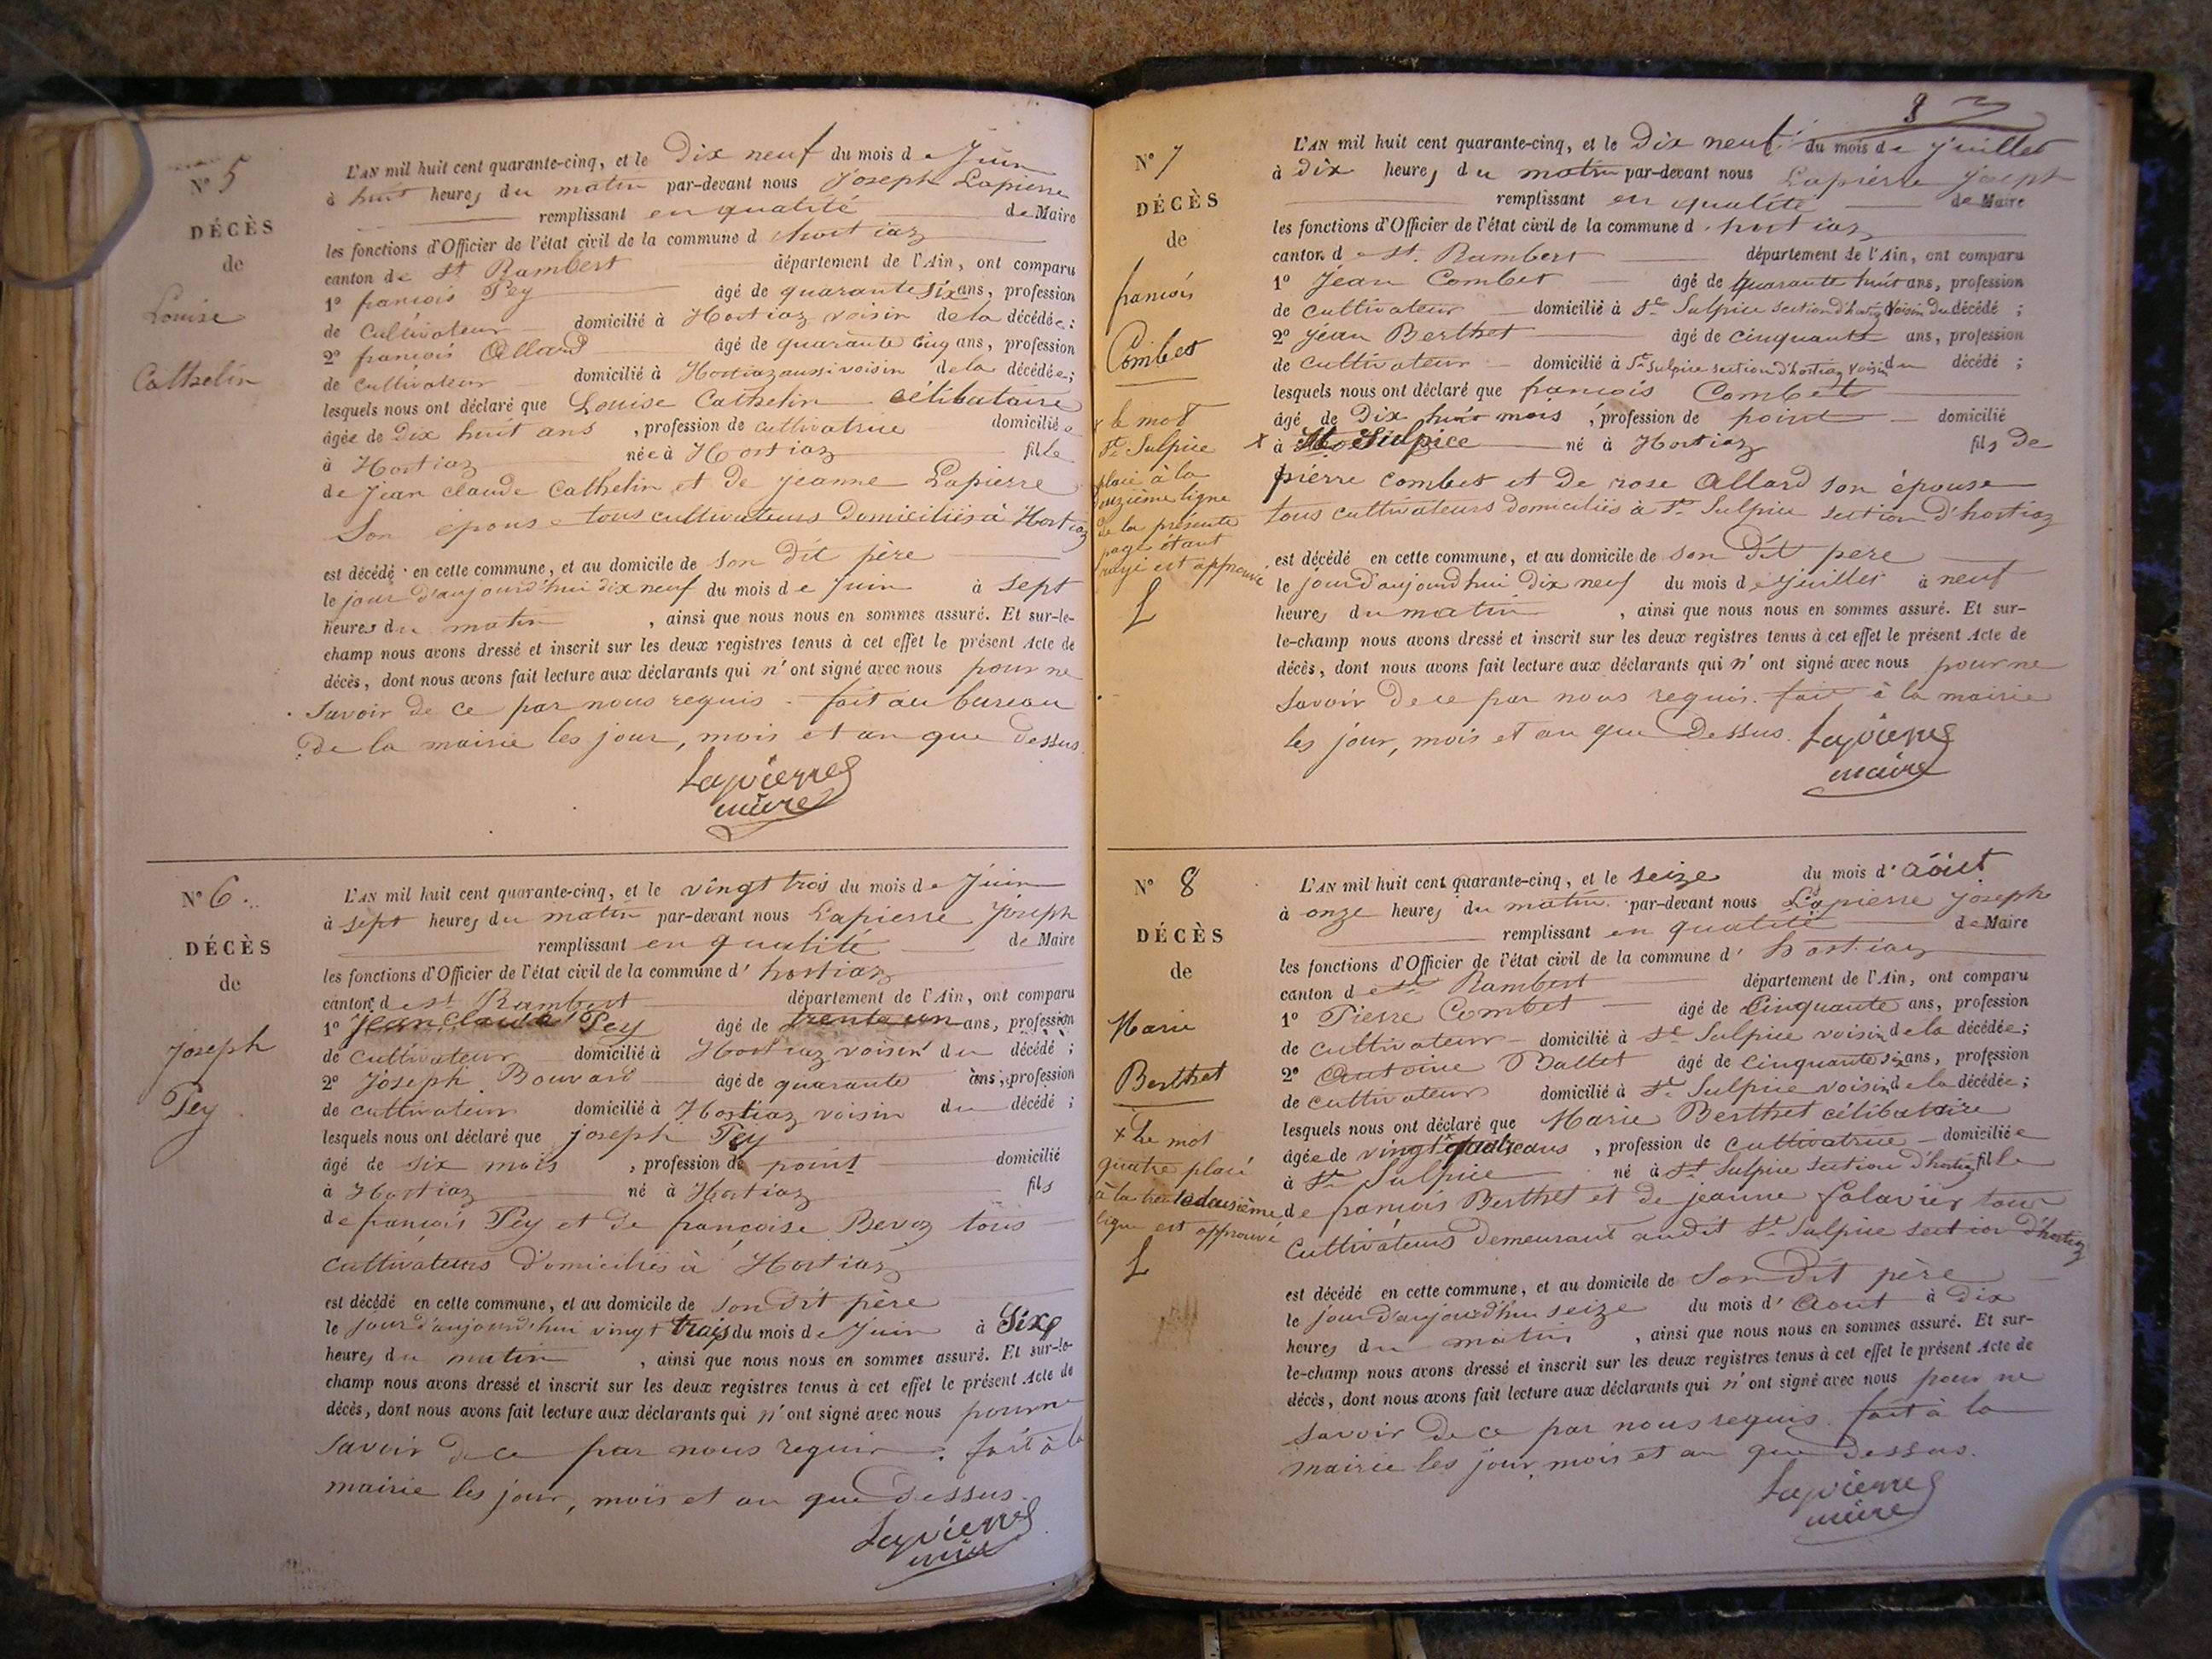 N° 5
DÉCÈS
de
Louise
Cathelin
L'AN mil huit cent quarante-cinq, et le Dix neuf du mois de Juin
à huit heures du matin par-devant nous Joseph Lapierre
remplissant en qualité de Maire
les fonctions d'Officier de l'état civil de la commune d hortiaz
canton de St Rambert département de l'Ain, ont comparu
1° francois Pey âgé de quarante six ans, profession
de Cultivateur domicilié à Hortiaz voisin de la décédée;
2° francois Allard âgé de quarante cinq ans, profession
de cultivateur domicilié à Hortiaz aussi voisin de la décédée;
lesquels nous ont déclaré que Louise Cathelin célibataire
âgée de Dix huit ans, profession de cultivatrice domiciliée
à Hortiaz née à Hortiaz fille
de Jean claude Cathelin et de jeanne Lapierre
Son épouse tous cultivateurs Domiciliés à Hortiaz
est décédé en cette commune, et au domicile de son dit père
le jour d'aujourd'hui dix neuf du mois de juin à sept
heures du matin, ainsi que nous nous en sommes assuré. Et sur-le-
champ nous avons dressé et inscrit sur les deux registres tenus à cet effet le présent Acte de
décès, dont nous avons fait lecture aux déclarants qui n'ont signé avec nous pour ne
Savoir de ce par nous requis. fait au bureau
de la mairie les jour, mois et an que dessus.
Lapierre
maire
N° 6
DÉCÈS
de
Joseph
Pey
L'AN mil huit cent quarante-cinq, et le vingt trois du mois de Juin
à sept heures du matin par-devant nous Lapierre Joseph
remplissant en qualité de Maire
les fonctions d'Officier de l'état civil de la commune d'hortiaz
canton de st Rambert département de l'Ain, ont comparu
1° Jean claude Pey âgé de trente un ans, profession
de cultivateur domicilié à Hortiaz voisin du décédé;
2° Joseph Bouvard âgé de quarante ans, profession
de cultivateur domicilié à Hortiaz voisin du décédé;
lesquels nous ont déclaré que joseph Pey
âgé de six mois, profession de point domicilié
à Hortiaz né à Hortiaz fils
de françois Pey et de françoise Bevoz tous
cultivateurs Domiciliés à Hortiaz
est décédé en cette commune, et au domicile de son dit père
le jour d'aujourd'hui vingt trois du mois de Juin à Six
heures du matin, ainsi que nous nous en sommes assuré. Et sur-le-
champ nous avons dressé et inscrit sur les deux registres tenus à cet effet le présent Acte de
décès, dont nous avons fait lecture aux déclarants qui n'ont signé avec nous pour ne
Savoir de ce par nous requis. fait à la
mairie les jour, mois et an que dessus.
Lapierre
maire
N° 7
DÉCÈS
de
francois
Combet
x le mot
St Sulpice
placé à la
douzième ligne
de la présente
page étant
est approuvé
L
L'AN mil huit cent quarante-cinq, et le Dix neuf du mois de juillet
à Dix heures du matin par-devant nous Lapierre joseph
remplissant en qualité de Maire
les fonctions d'Officier de l'état civil de la commune d hortiaz
canton de St. Rambert département de l'Ain, ont comparu
1° Jean Combet âgé de quarante huit ans, profession
de cultivateur domicilié à St Sulpice section d'hortiaz voisin du décédé;
2° jean Berthet âgé de cinquante ans, profession
de cultivateur domicilié à St Sulpice section d'hortiaz voisin du décédé;
lesquels nous ont déclaré que francois Combet
âgé de Dix huit mois, profession de point domicilié
x à St Sulpice né à Hortiaz fils de
pierre Combet et de rose Allard son épouse
tous cultivateurs domiciliés à St Sulpice section d'hortiaz
est décédé en cette commune, et au domicile de son dit père
le jour d'aujourd'hui Dix neuf du mois de juillet à neuf
heures du matin, ainsi que nous nous en sommes assuré. Et sur-
le-champ nous avons dressé et inscrit sur les deux registres tenus à cet effet le présent Acte de
décès, dont nous avons fait lecture aux déclarants qui n'ont signé avec nous pour ne
Savoir de ce par nous requis. fait à la mairie
les jour, mois et an que Dessus.
Lapierre
maire
N° 8
DÉCÈS
de
Marie
Berthet
x Le mot
quatre placé
à la
ligne est approuvé
L
L'AN mil huit cent quarante-cinq, et le seize du mois d'août
à onze heures du matin par-devant nous Lapierre Joseph
remplissant en qualité de Maire
les fonctions d'Officier de l'état civil de la commune d'hortiaz
canton de St Rambert département de l'Ain, ont comparu
1° Pierre Combet âgé de Cinquante ans, profession
de cultivateur domicilié à St Sulpice voisin de la décédée;
2° Antoine Ballet âgé de Cinquante six ans, profession
de cultivateur domicilié à St Sulpice voisin de la décédée;
lesquels nous ont déclaré que Marie Berthet célibataire
âgée de vingt x quatre ans, profession de cultivatrice domiciliée
à St Sulpice né à St Sulpice section d'hortiaz fille
de francois Berthet et de jeanne falavier tous
Cultivateurs demeurant audit St Sulpice section d'hortiaz
est décédé en cette commune, et au domicile de Son Dit père
le jour d'aujourd'hui seize du mois d'Aout à dix
heures du matin, ainsi que nous nous en sommes assuré. Et sur-
le-champ nous avons dressé et inscrit sur les deux registres tenus à cet effet le présent Acte de
décès, dont nous avons fait lecture aux déclarants qui n'ont signé avec nous pour ne
Savoir de ce par nous requis. fait à la
mairie les jour, mois et an que dessus.
Lapierre
maire